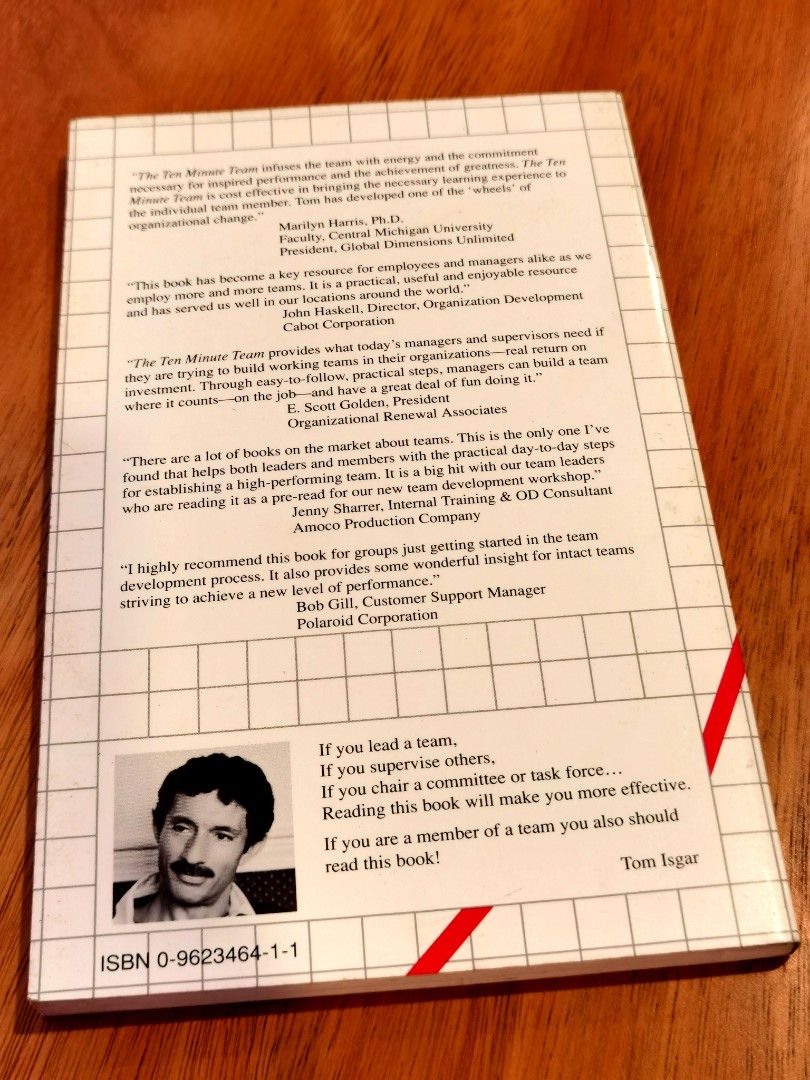 “The Ten Minute Team infuses the team with energy and the commitment
necessary for inspired performance and the achievement of greatness. The Ten
Minute Team is cost effective in bringing the necessary learning experience to
the individual team member. Tom has developed one of the ‘wheels’ of
organizational change.”
Marilyn Harris, Ph.D.
Faculty, Central Michigan University
President, Global Dimensions Unlimited
“This book has become a key resource for employees and managers alike as we
employ more and more teams. It is a practical, useful and enjoyable resource
and has served us well in our locations around the world.”
John Haskell, Director, Organization Development
Cabot Corporation
“The Ten Minute Team provides what today’s managers and supervisors need if
they are trying to build working teams in their organizations—real return on
investment. Through easy-to-follow, practical steps, managers can build a team
where it counts—on the job—and have a great deal of fun doing it.”
E. Scott Golden, President
Organizational Renewal Associates
“There are a lot of books on the market about teams. This is the only one I’ve
found that helps both leaders and members with the practical day-to-day steps
for establishing a high-performing team. It is a big hit with our team leaders
who are reading it as a pre-read for our new team development workshop.”
Jenny Sharrer, Internal Training & OD Consultant
Amoco Production Company
“I highly recommend this book for groups just getting started in the team
development process. It also provides some wonderful insight for intact teams
striving to achieve a new level of performance.”
Bob Gill, Customer Support Manager
Polaroid Corporation
If you lead a team,
If you supervise others,
If you chair a committee or task force…
Reading this book will make you more effective.
If you are a member of a team you also should
read this book!
Tom Isgar
ISBN 0-9623464-1-1